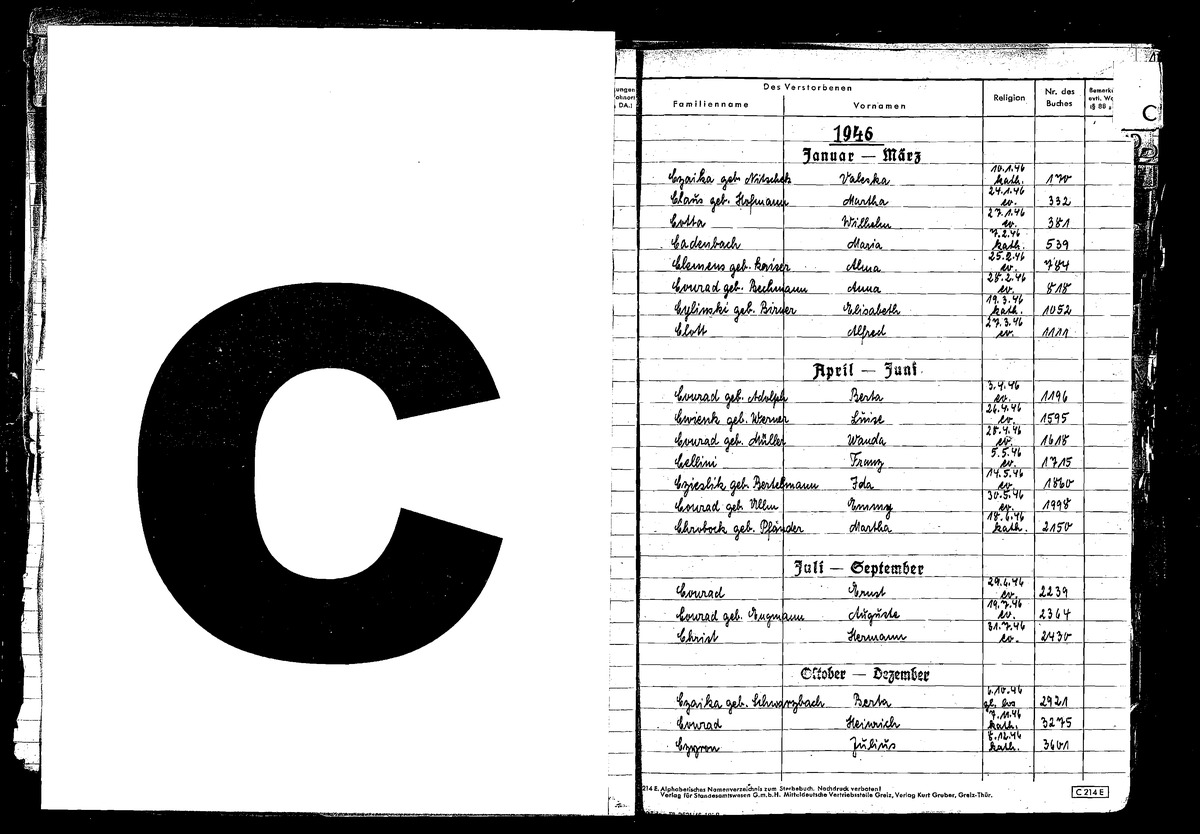 C
C
Des Verstorbenen
Familienname Vornamen Religion Nr. des Buches
1946
Januar — März
10.1.46
Czaika geb. Nitschek Valeska kath. 170
24.1.46
Claus geb. Hofmann Martha ev. 332
27.1.46
Cotta Wilhelm ev. 381
7.2.46
Cadenbach Maria kath. 539
25.2.46
Clemens geb. Kaiser Alma ev. 784
28.2.46
Conrad geb. Bechmann Anna ev. 818
19.3.46
Cylinski geb. Birner Elisabeth kath. 1052
27.3.46
Clott Alfred ev. 1111
April — Juni
3.4.46
Conrad geb. Adolph Berta ev. 1196
26.4.46
Cwienk geb. Werner Luise ev. 1595
28.4.46
Conrad geb. Müller Wanda ev. 1618
5.5.46
Cellini Franz ev. 1715
14.5.46
Czieslik geb. Bertelmann Ida ev 1860
30.5.46
Conrad geb. Ullm Emmy ev. 1998
18.6.46
Chrobock geb. Pfänder Martha kath. 2150
Juli — September
29.6.46
Conrad Ernst ev. 2239
19.7.46
Conrad geb. Engmann Auguste ev. 2364
31.7.46
Christ Hermann ev. 2430
Oktober — Dezember
6.10.46
Czaika geb. Schwarzbach Berta gl. los 2921
7.11.46
Conrad Heinrich kath. 3275
8.12.46
Czyron Julius kath. 3601
214 E. Alphabetisches Namenverzeichnis zum Sterbebuch. Nachdruck verboten!
Verlag für Standesamtswesen G.m.b.H. Mitteldeutsche Vertriebsstelle Greiz, Verlag Kurt Gruber, Greiz-Thür.
C 214 E